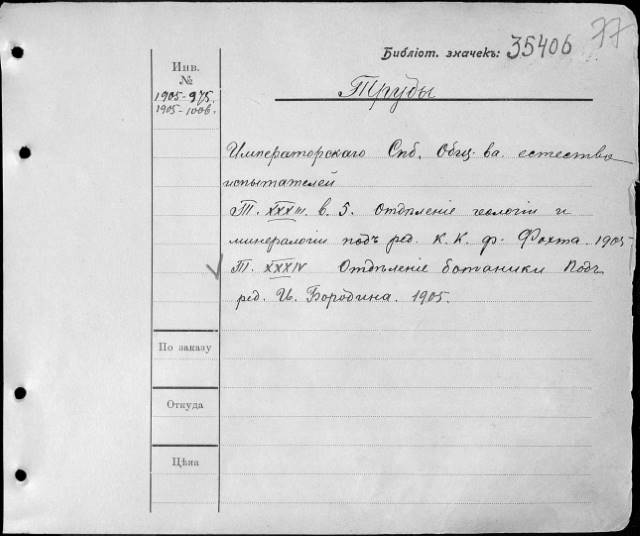 77
Библіот. значекъ: 35406
Инв.
№
1905-975.
1905-1006.
Труды
Императорскаго Спб. Общ-ва естество
испытателей
Т. XXXIII. в. 5. Отдѣленіе геологіи и
минералогіи подъ ред. К. К. ф. Фохта. 1905
Т. XXXIV Отдѣленіе ботаники Подъ
ред. И. Бородина. 1905.
По заказу
Откуда
Цѣна